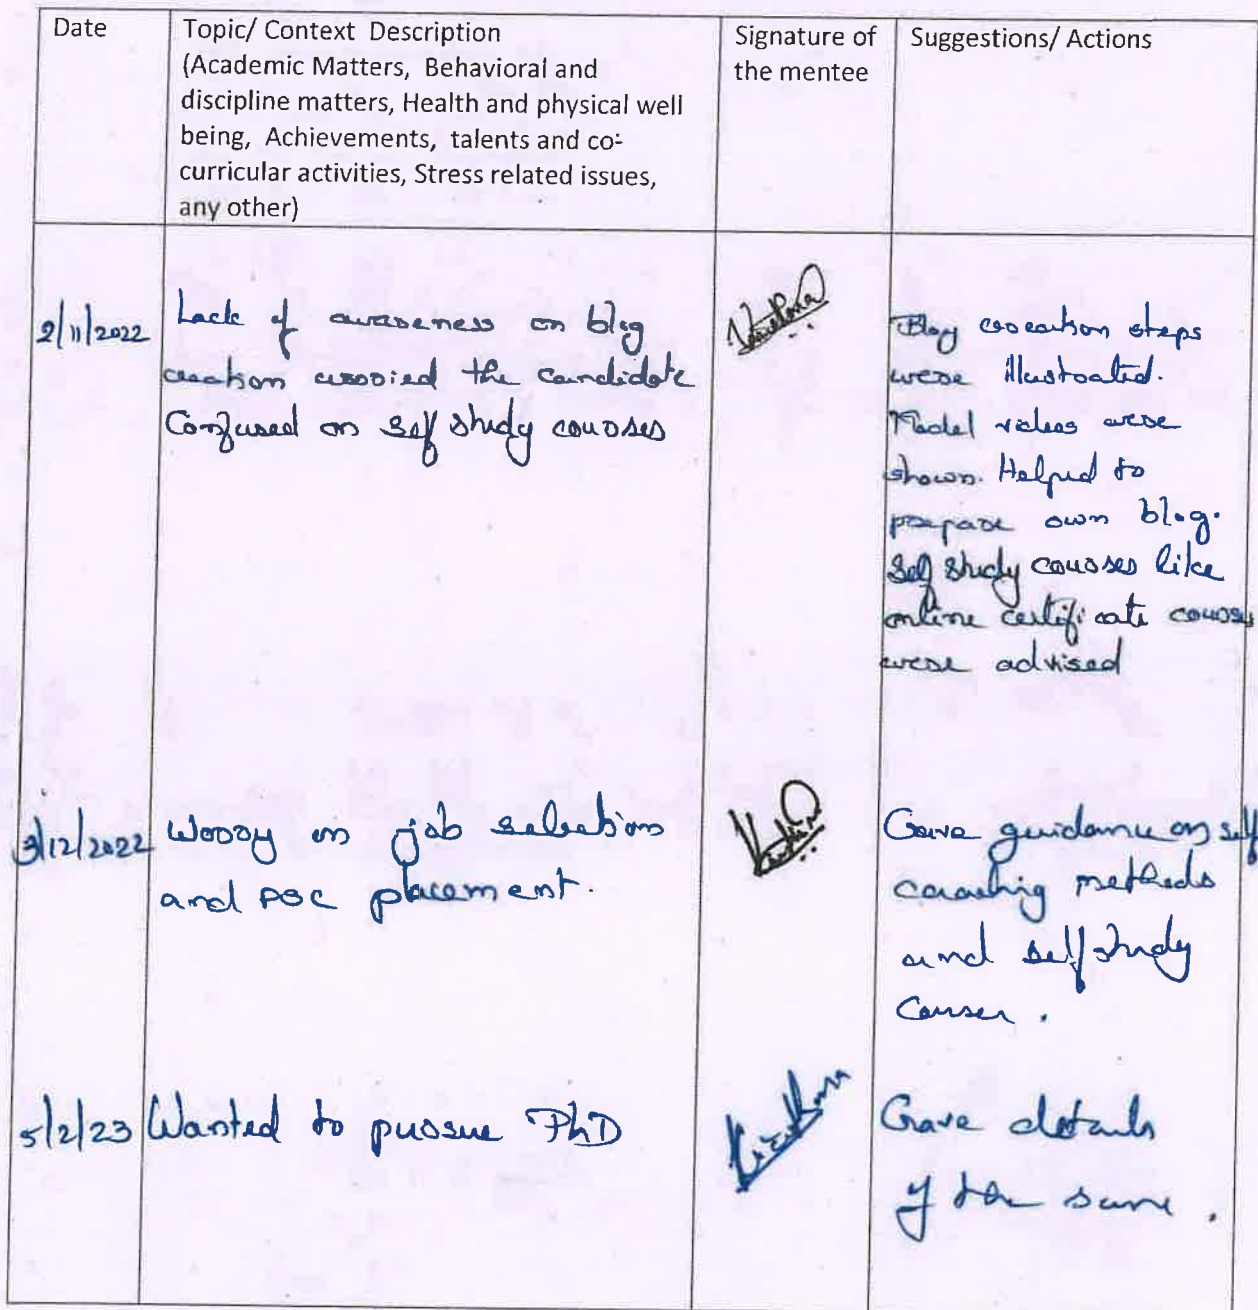 Date
Topic/ Context Description
(Academic Matters, Behavioral and
discipline matters, Health and physical well
being, Achievements, talents and co-
curricular activities, Stress related issues,
any other)
Signature of
the mentee
Suggestions/ Actions
2/11/2022
Lack of awareness on blog
creation worried the candidate
Confused on Self study courses
Blog creation steps
were illustrated.
Model videos were
shown. Helped to
prepare own blog.
Self study courses like
online certificate courses
were advised
3/12/2022
Worry on job selections
and PSC placement.
Gave guidance on self
coaching methods
and self study
5/2/23
Wanted to pursue PhD
Gave details
of the same.